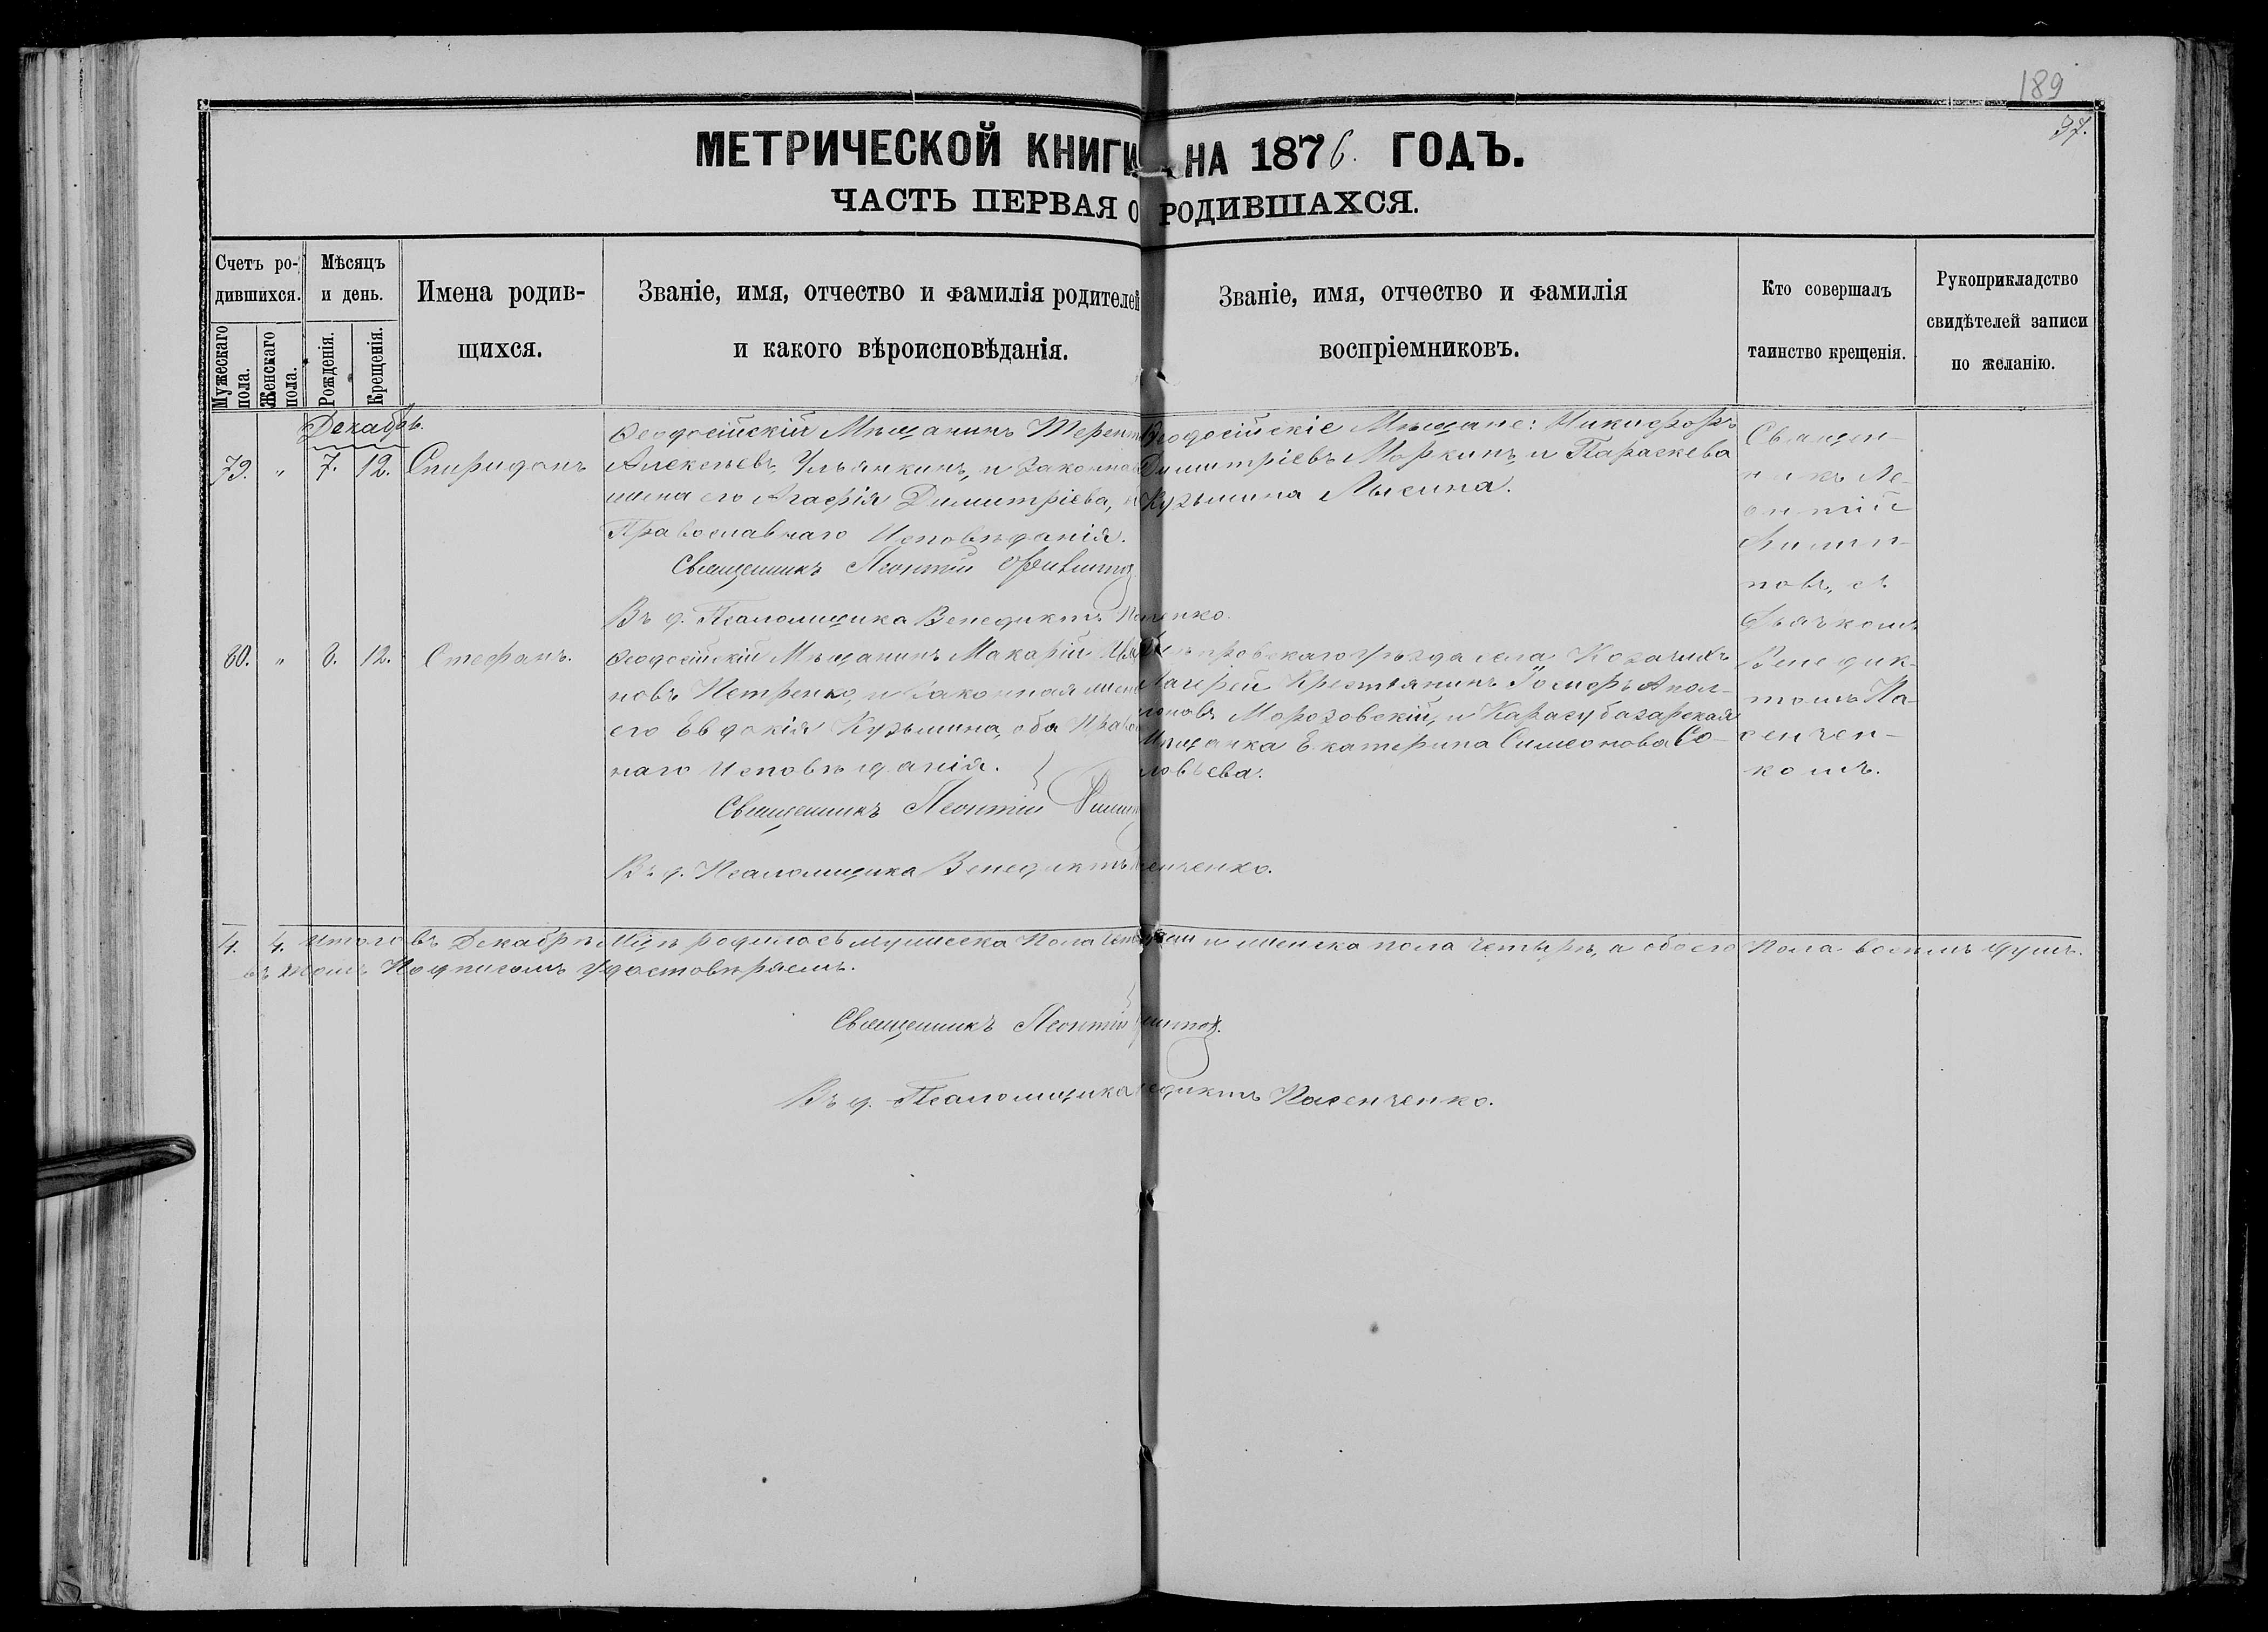 189
37.
МЕТРИЧЕСКОЙ КНИГИ НА 1876. ГОДЪ.
ЧАСТЬ ПЕРВАЯ О РОДИВШАХСЯ.
Счетъ ро-
дившихся.
Мужескаго пола.
Женскаго пола.
Мѣсяцъ
и день.
Рожденія.
Крещенія.
Имена родив-
щихся.
Званіе, имя, отчество и фамилія родителей
и какого вѣроисповѣданія.
Званіе, имя, отчество и фамилія
воспріемниковъ.
Кто совершалъ
таинство крещенія.
Рукоприкладство
свидѣтелей записи
по желанію.
Декабрь.
79. " 7. 12. Спиридонъ
Ѳеодосійскій Мѣщанинъ Терент
Алексѣевъ Ульянкинъ, и законная
жена его Агафія Димитріева,
Православнаго Исповѣданія.
Священникъ Леонтій Филипп
Въ д. Псаломщика Венедиктъ
Ѳеодосійскіе Мѣщане: Никифоръ
Димитріевъ Моркинъ и Параскева
Кузьмина Лысина.
Священ-
никъ Ле-
онтій
Филип-
повъ, съ
Дьячкомъ
80. " 8. 12. Стефанъ.
Ѳеодосійскій Мѣщанинъ Макарій
новъ Петренко, и законная жена
его Евдокія Кузьмина, оба Право
наго Исповѣданія.
Священникъ Леонтій Филип
Въ д. Псаломщика Венедиктъ сенченко.
Днѣпровскаго уѣзда села Козачихъ
Лагерей Крестьянинъ Іосифъ Апол-
лоновъ Морозовскій, и Карасубазарская
Мѣщанка Екатерина Симеонова Со-
ловьева.
Венедик-
томъ Па-
сенчен-
комъ.
4. 4. Итого въ Декабрѣ Мцѣ родилось мужеска пола четыре и женска пола четыре, а обоего пола восемь душъ.
въ томъ Подписомъ удостовѣряемъ.
Священникъ Леонтій Филиппов.
Въ д. Псаломщика Венедиктъ Пасенченко.